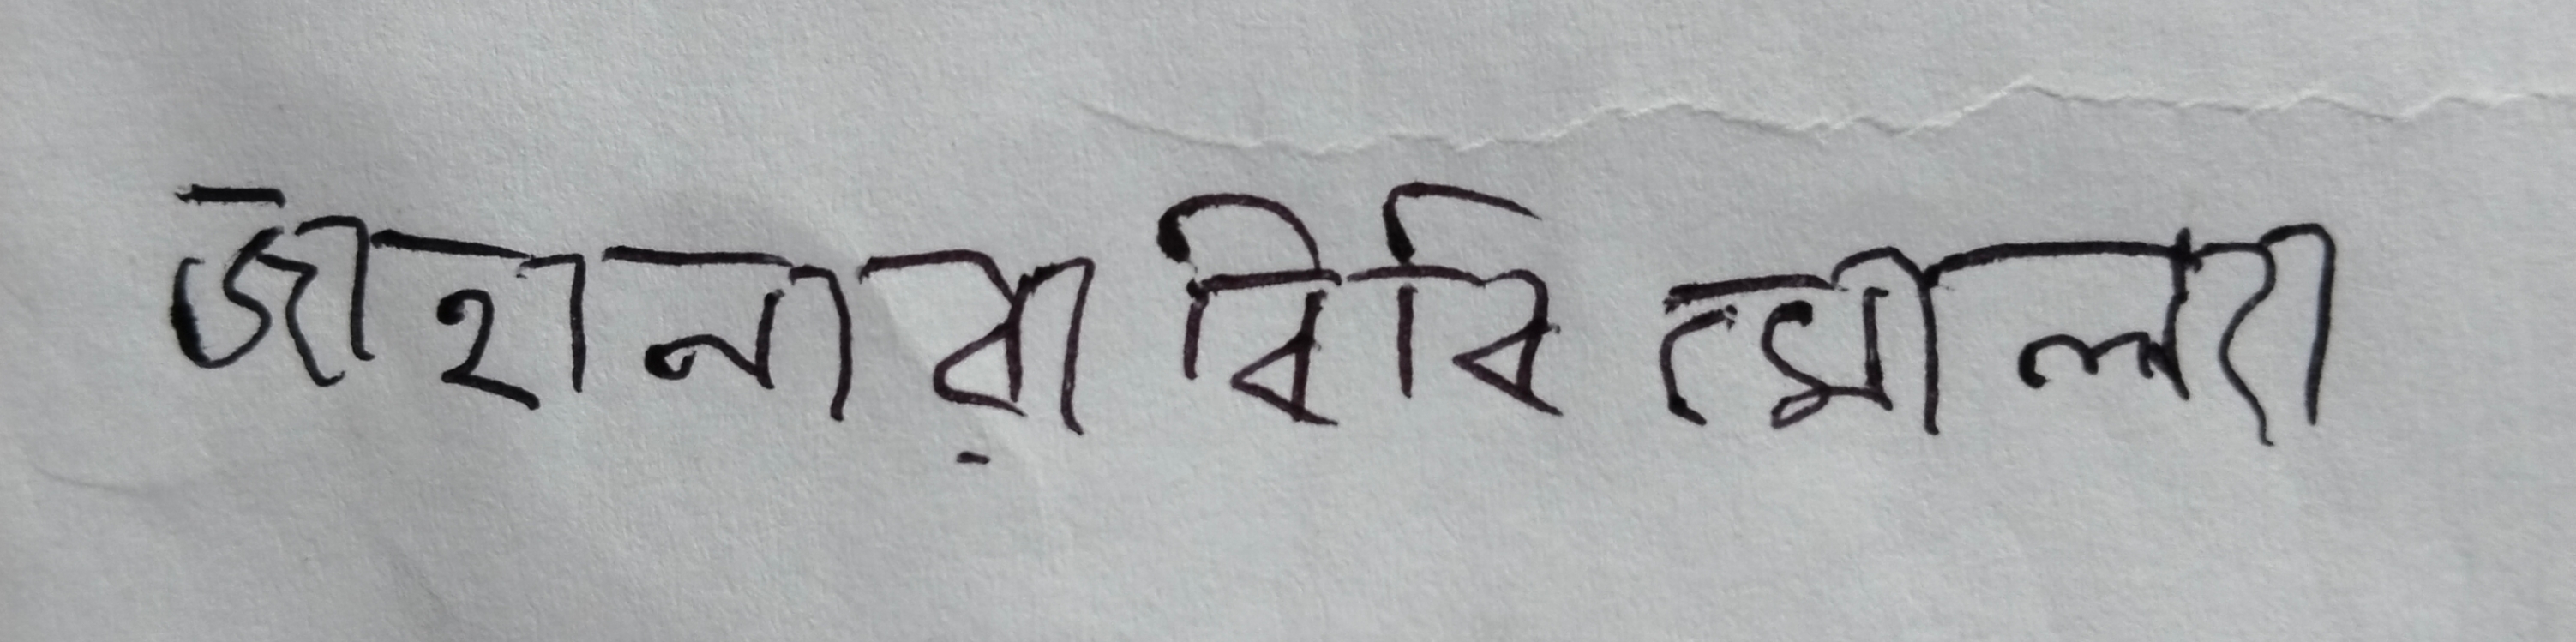 জাহানারা বিবি মোল্লা